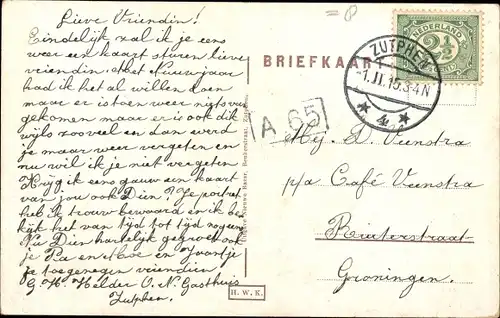 Lieve Vriendin!
Eindelijk zal ik je eens
weer een kaart sturen lieve
vriendin. Met Nieuwjaar
had ik het al willen doen
maar er is toen weer niets van
gekomen maar er is ook dik
wijls zooveel en dan werd
je maar weer vergeten en
nu wil ik je niet vergeten
Krijg ik eens gauw een kaart
van jou ook Dien? Je portret
heb ik trouw bewaard en ik be
kijk het van tijd tot tijd nog eens
Nu Dien hartelijk gegroet ook
je Pa en Moe en Zwantje
je toegenegen vriendin
G. H. Helder O. N. Gasthuis
Zutphen.
BRIEFKAART
NEDERLAND
2½
ZUTPHEN
1.II.15.3-4N
4
A 65
Mej. D. Veenstra
p/a Café Veenstra
Ruiterstraat
Groningen.
H. W. K.